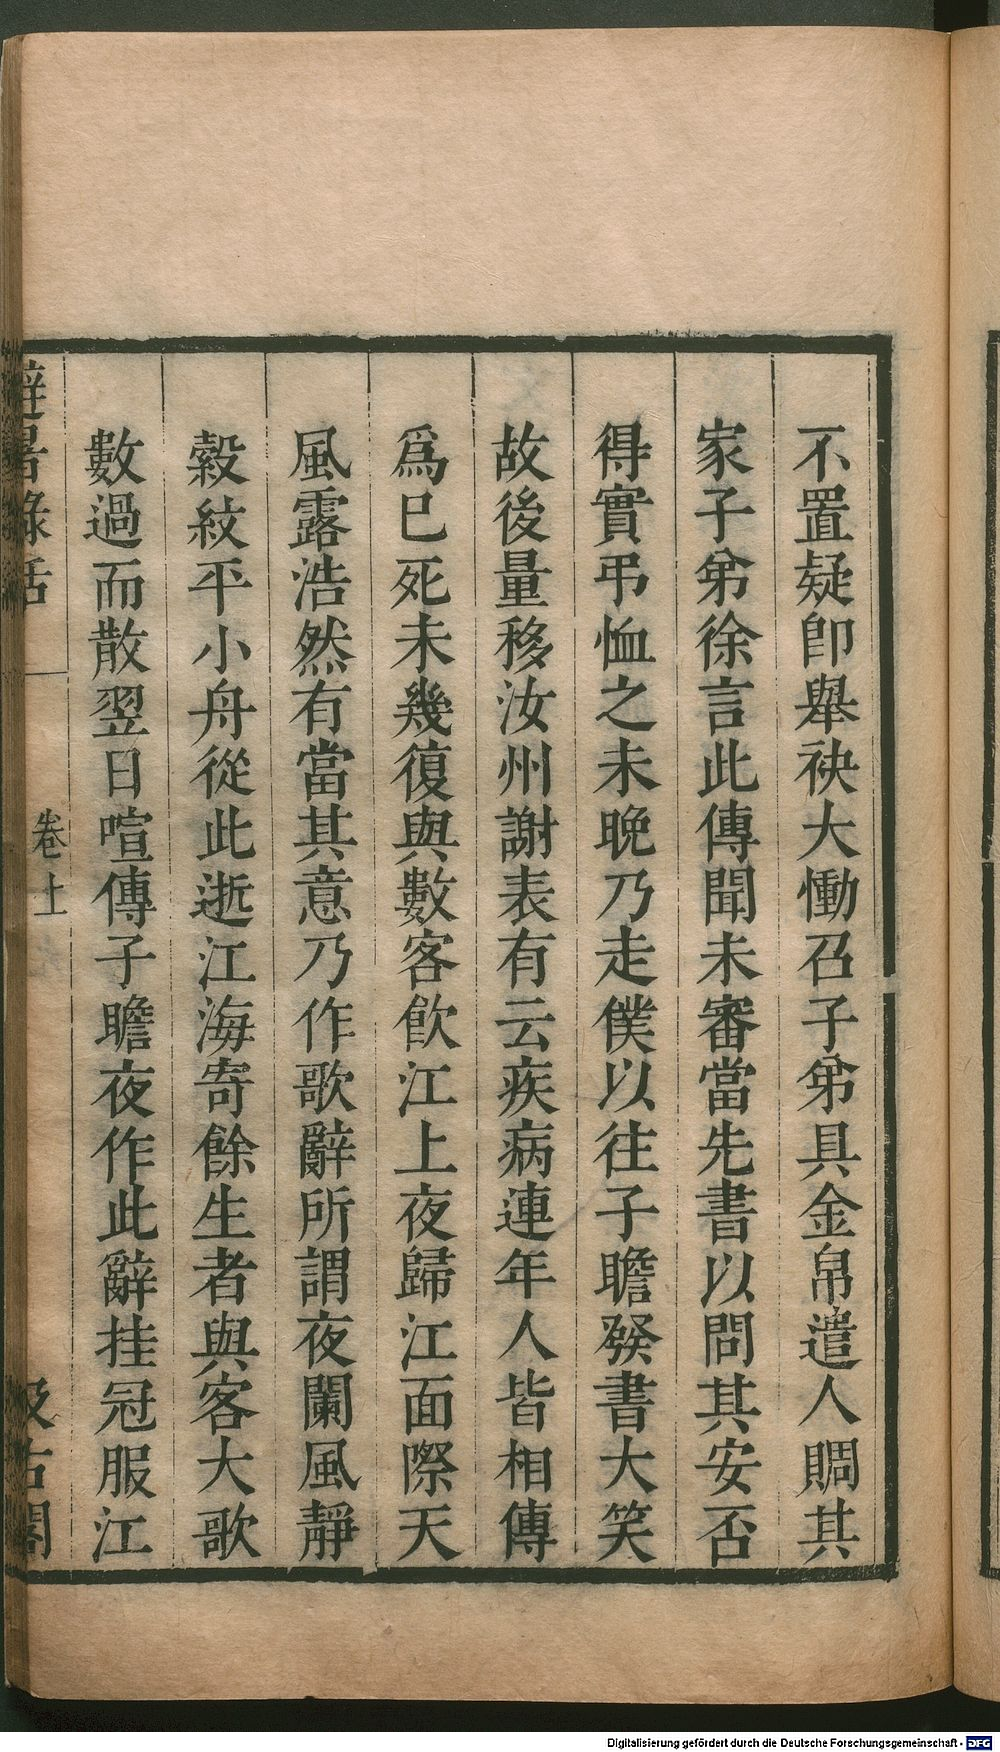 不置疑卽舉袂大慟召子弟具金帛遣人賙其
家子弟徐言此傳聞未審當先書以問其安否
得實弔恤之未晚乃走僕以往子瞻發書大笑
故後量移汝州謝表有云疾病連年人皆相傳
爲已死未幾復與數客飮江上夜歸江面際天
風露浩然有當其意乃作歌辭所謂夜闌風靜
縠紋平小舟從此逝江海寄餘生者與客大歌
數過而散翌日喧傳子瞻夜作此辭挂冠服江
避暑錄話
卷上
汲古閣
Digitalisierung gefördert durch die Deutsche Forschungsgemeinschaft - DFG